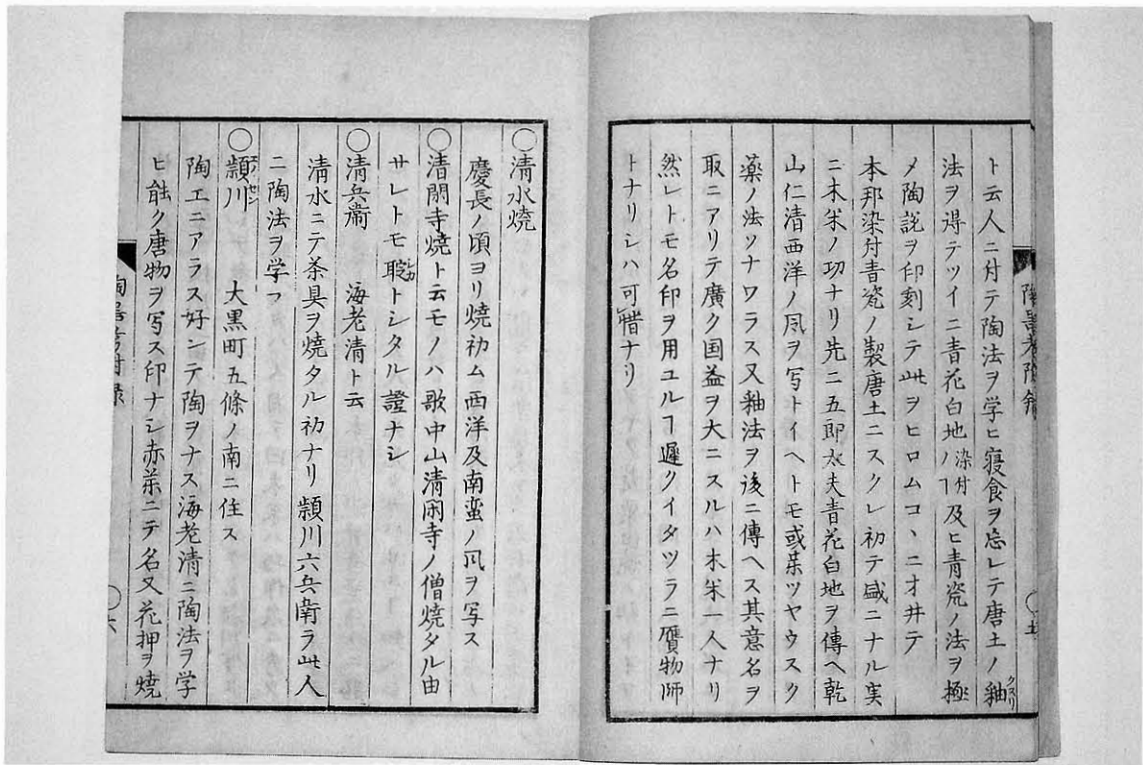 ト云人ニ付テ陶法ヲ学ヒ寝食ヲ忘レテ唐土ノ釉クスリ
法ヲ得テツイニ青花白地染付ノヿ及ヒ青瓷ノ法ヲ極
メ陶説ヲ印刻シテ此ヲヒロムコヽニオ井テ
本邦染付青瓷ノ製唐土ニスクレ初テ盛ニナル実
ニ木米ノ功ナリ先ニ五郎太夫青花白地ヲ傳ヘ乾
山仁清西洋ノ風ヲ写トイヘトモ或葉ツヤウスク
薬ノ法ソナワラス又釉法ヲ後ニ傳ヘス其意名ヲ
取ニアリテ廣ク国益ヲ大ニスルハ木米一人ナリ
然レトモ名印ヲ用ユルヿ遅クイタツラニ贋物師
トナリシハ可惜ナリ
陶器考附録
○五
○清水焼
慶長ノ頃ヨリ焼初ム西洋及南蛮ノ風ヲ写ス
○清閑寺焼ト云モノハ歌中山清閑寺ノ僧焼タル由
サレトモ聢シカトシタル證ナシ
○清兵衞 海老清ト云
清水ニテ茶具ヲ焼タル初ナリ頴川六兵衛ラ此人
ニ陶法ヲ学フ
○頴川 大黒町五條ノ南ニ住ス
陶工ニアラス好ンテ陶ヲナス海老清ニ陶法ヲ学
ヒ能ク唐物ヲ写ス印ナシ赤葉ニテ名又花押ヲ焼
陶器考附録
○六